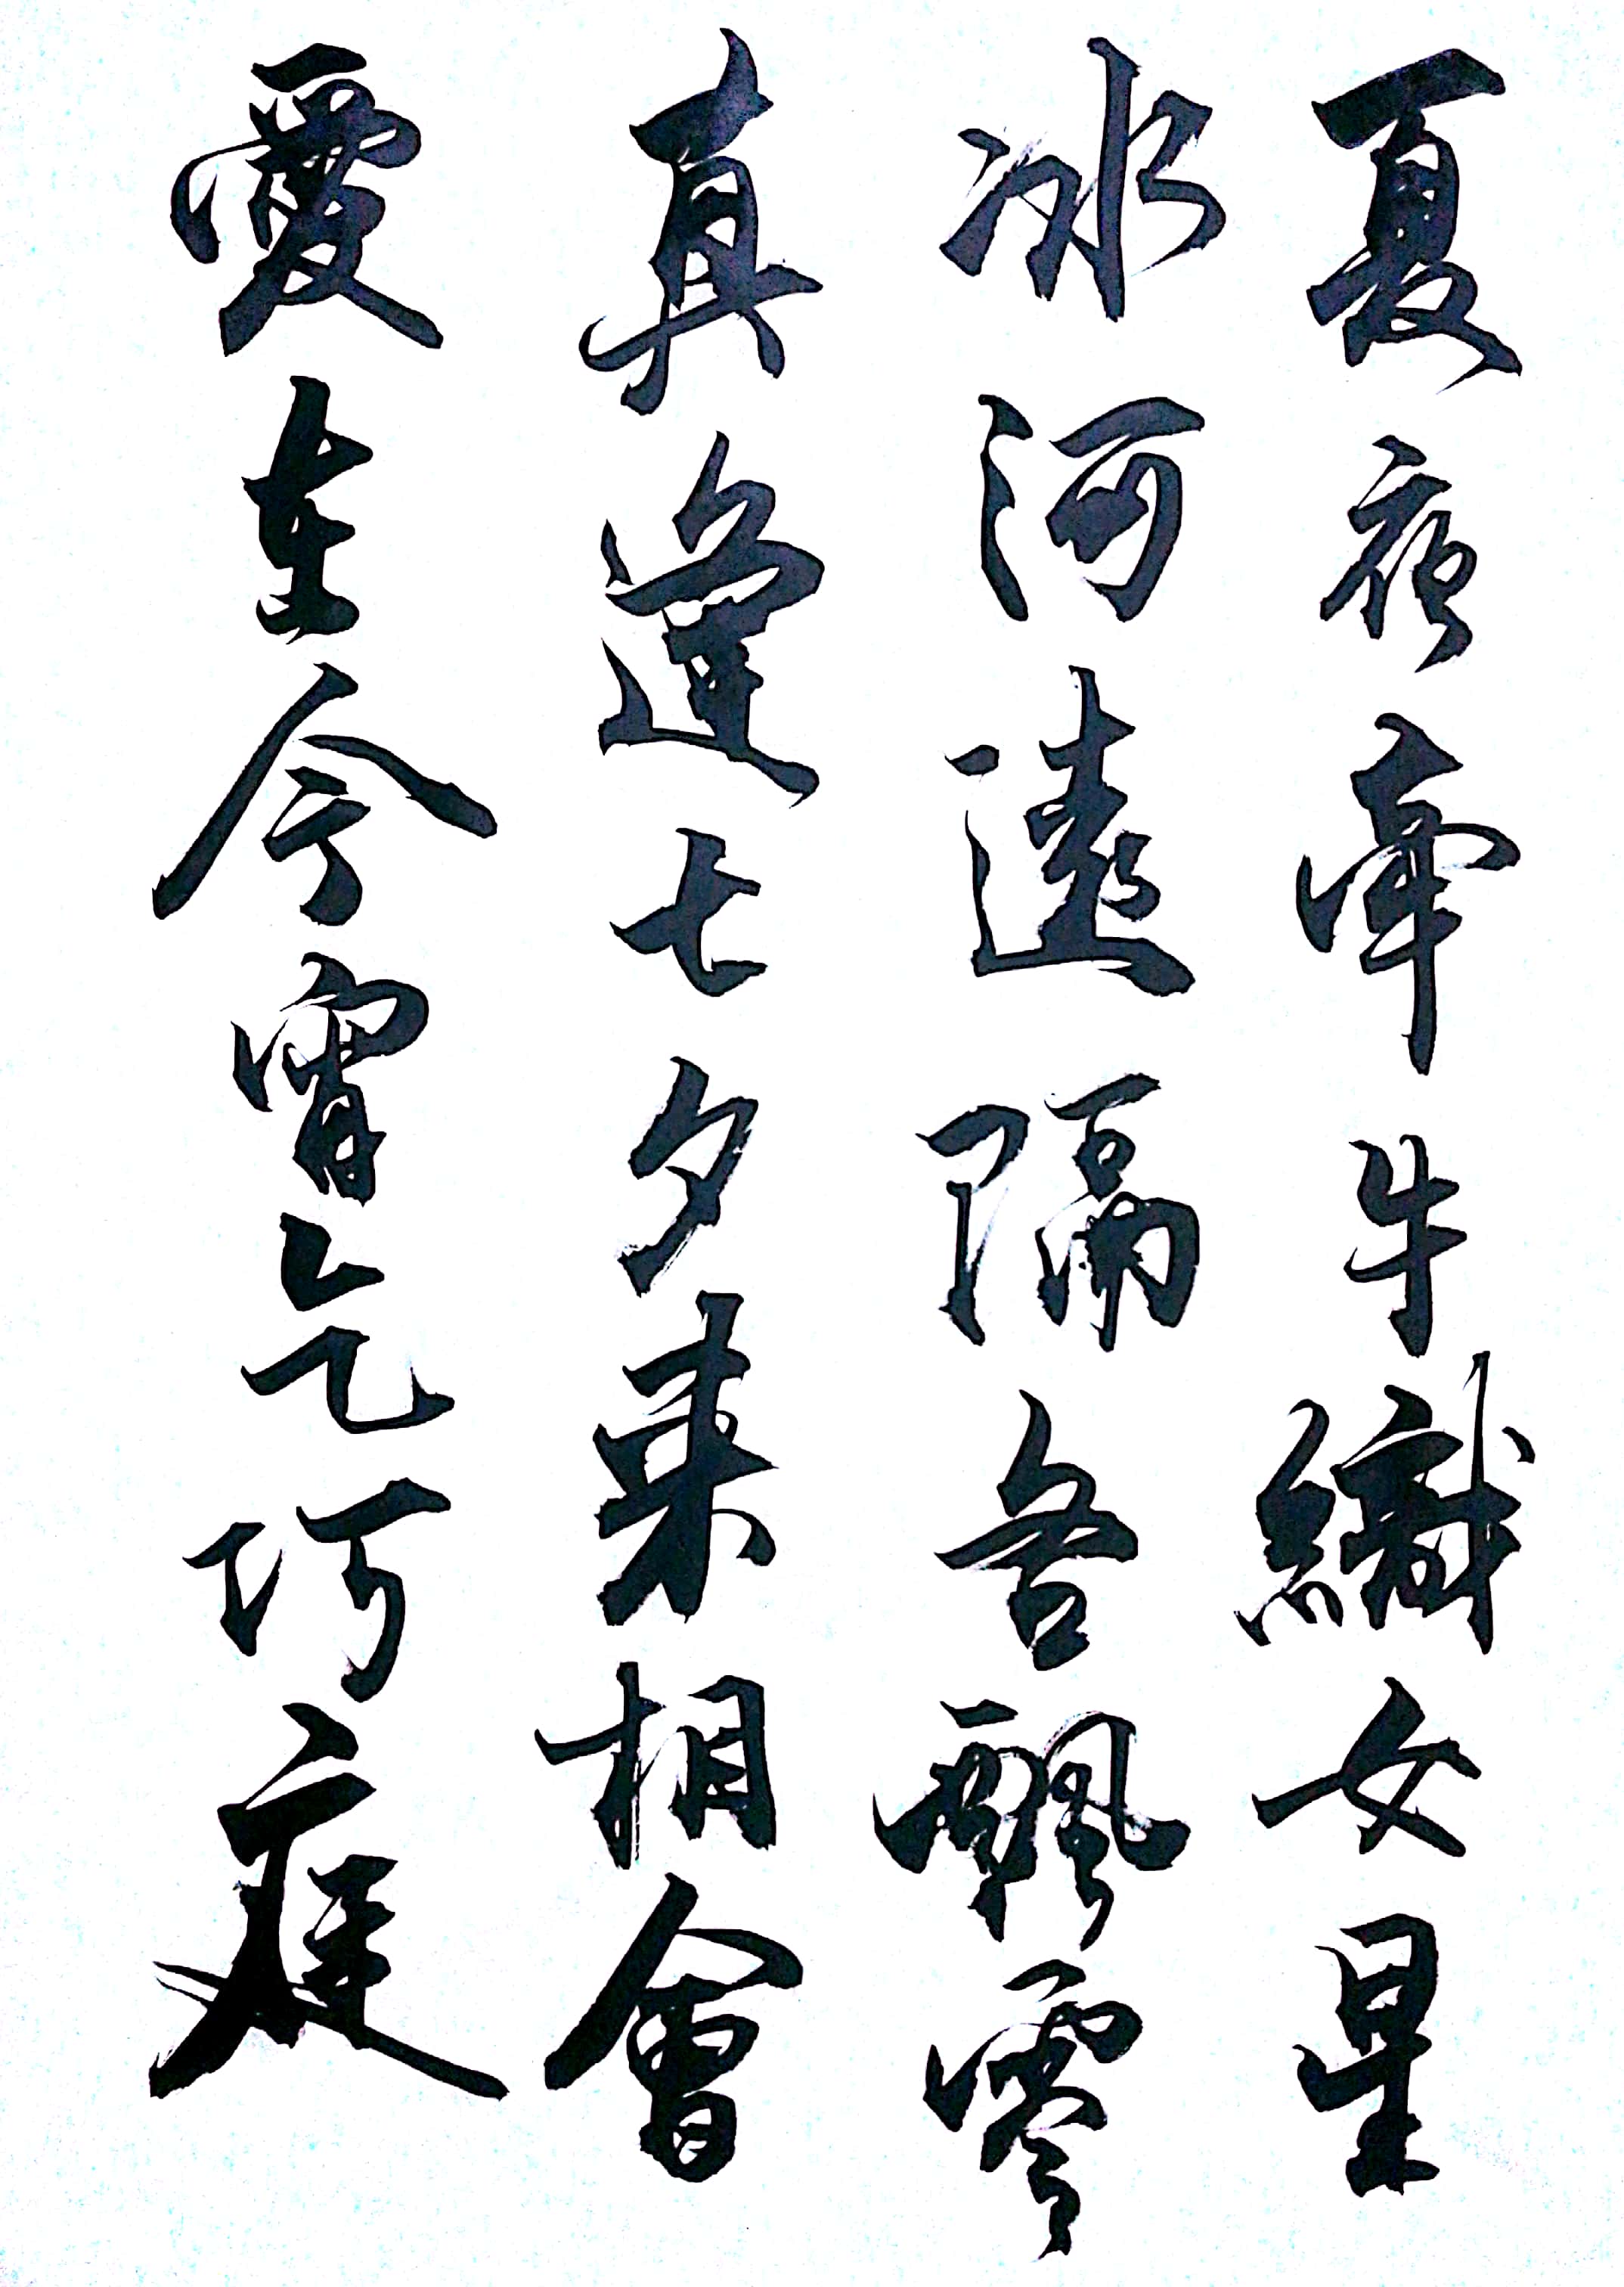 夏夜牽牛織女星
冰河遠隔各飄零
真逢七夕來相會
愛在今宵乞巧庭